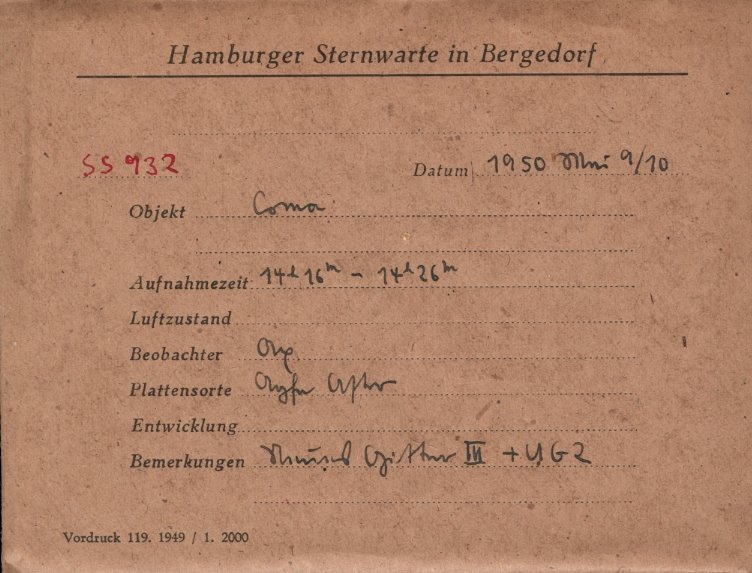 Hamburger Sternwarte in Bergedorf
SS 932
Datum 1950 Mai 9/10
Objekt Coma
Aufnahmezeit 14h 16m - 14h 26m
Luftzustand
Beobachter
Plattensorte Agfa Astro
Entwicklung
Bemerkungen Gitter III + UG2
Vordruck 119. 1949 / 1. 2000